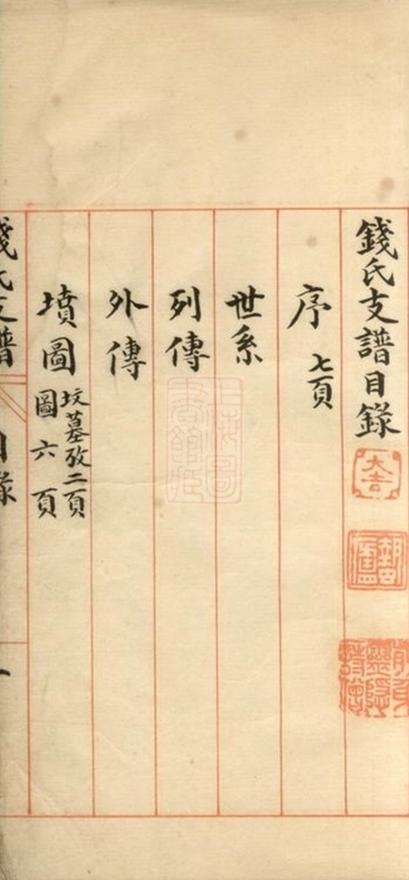 錢氏支譜目錄
大吉
序 七頁
世系
列傳
外傳
墳圖 坟墓攷二頁
圖六頁
錢氏支譜
目錄
一